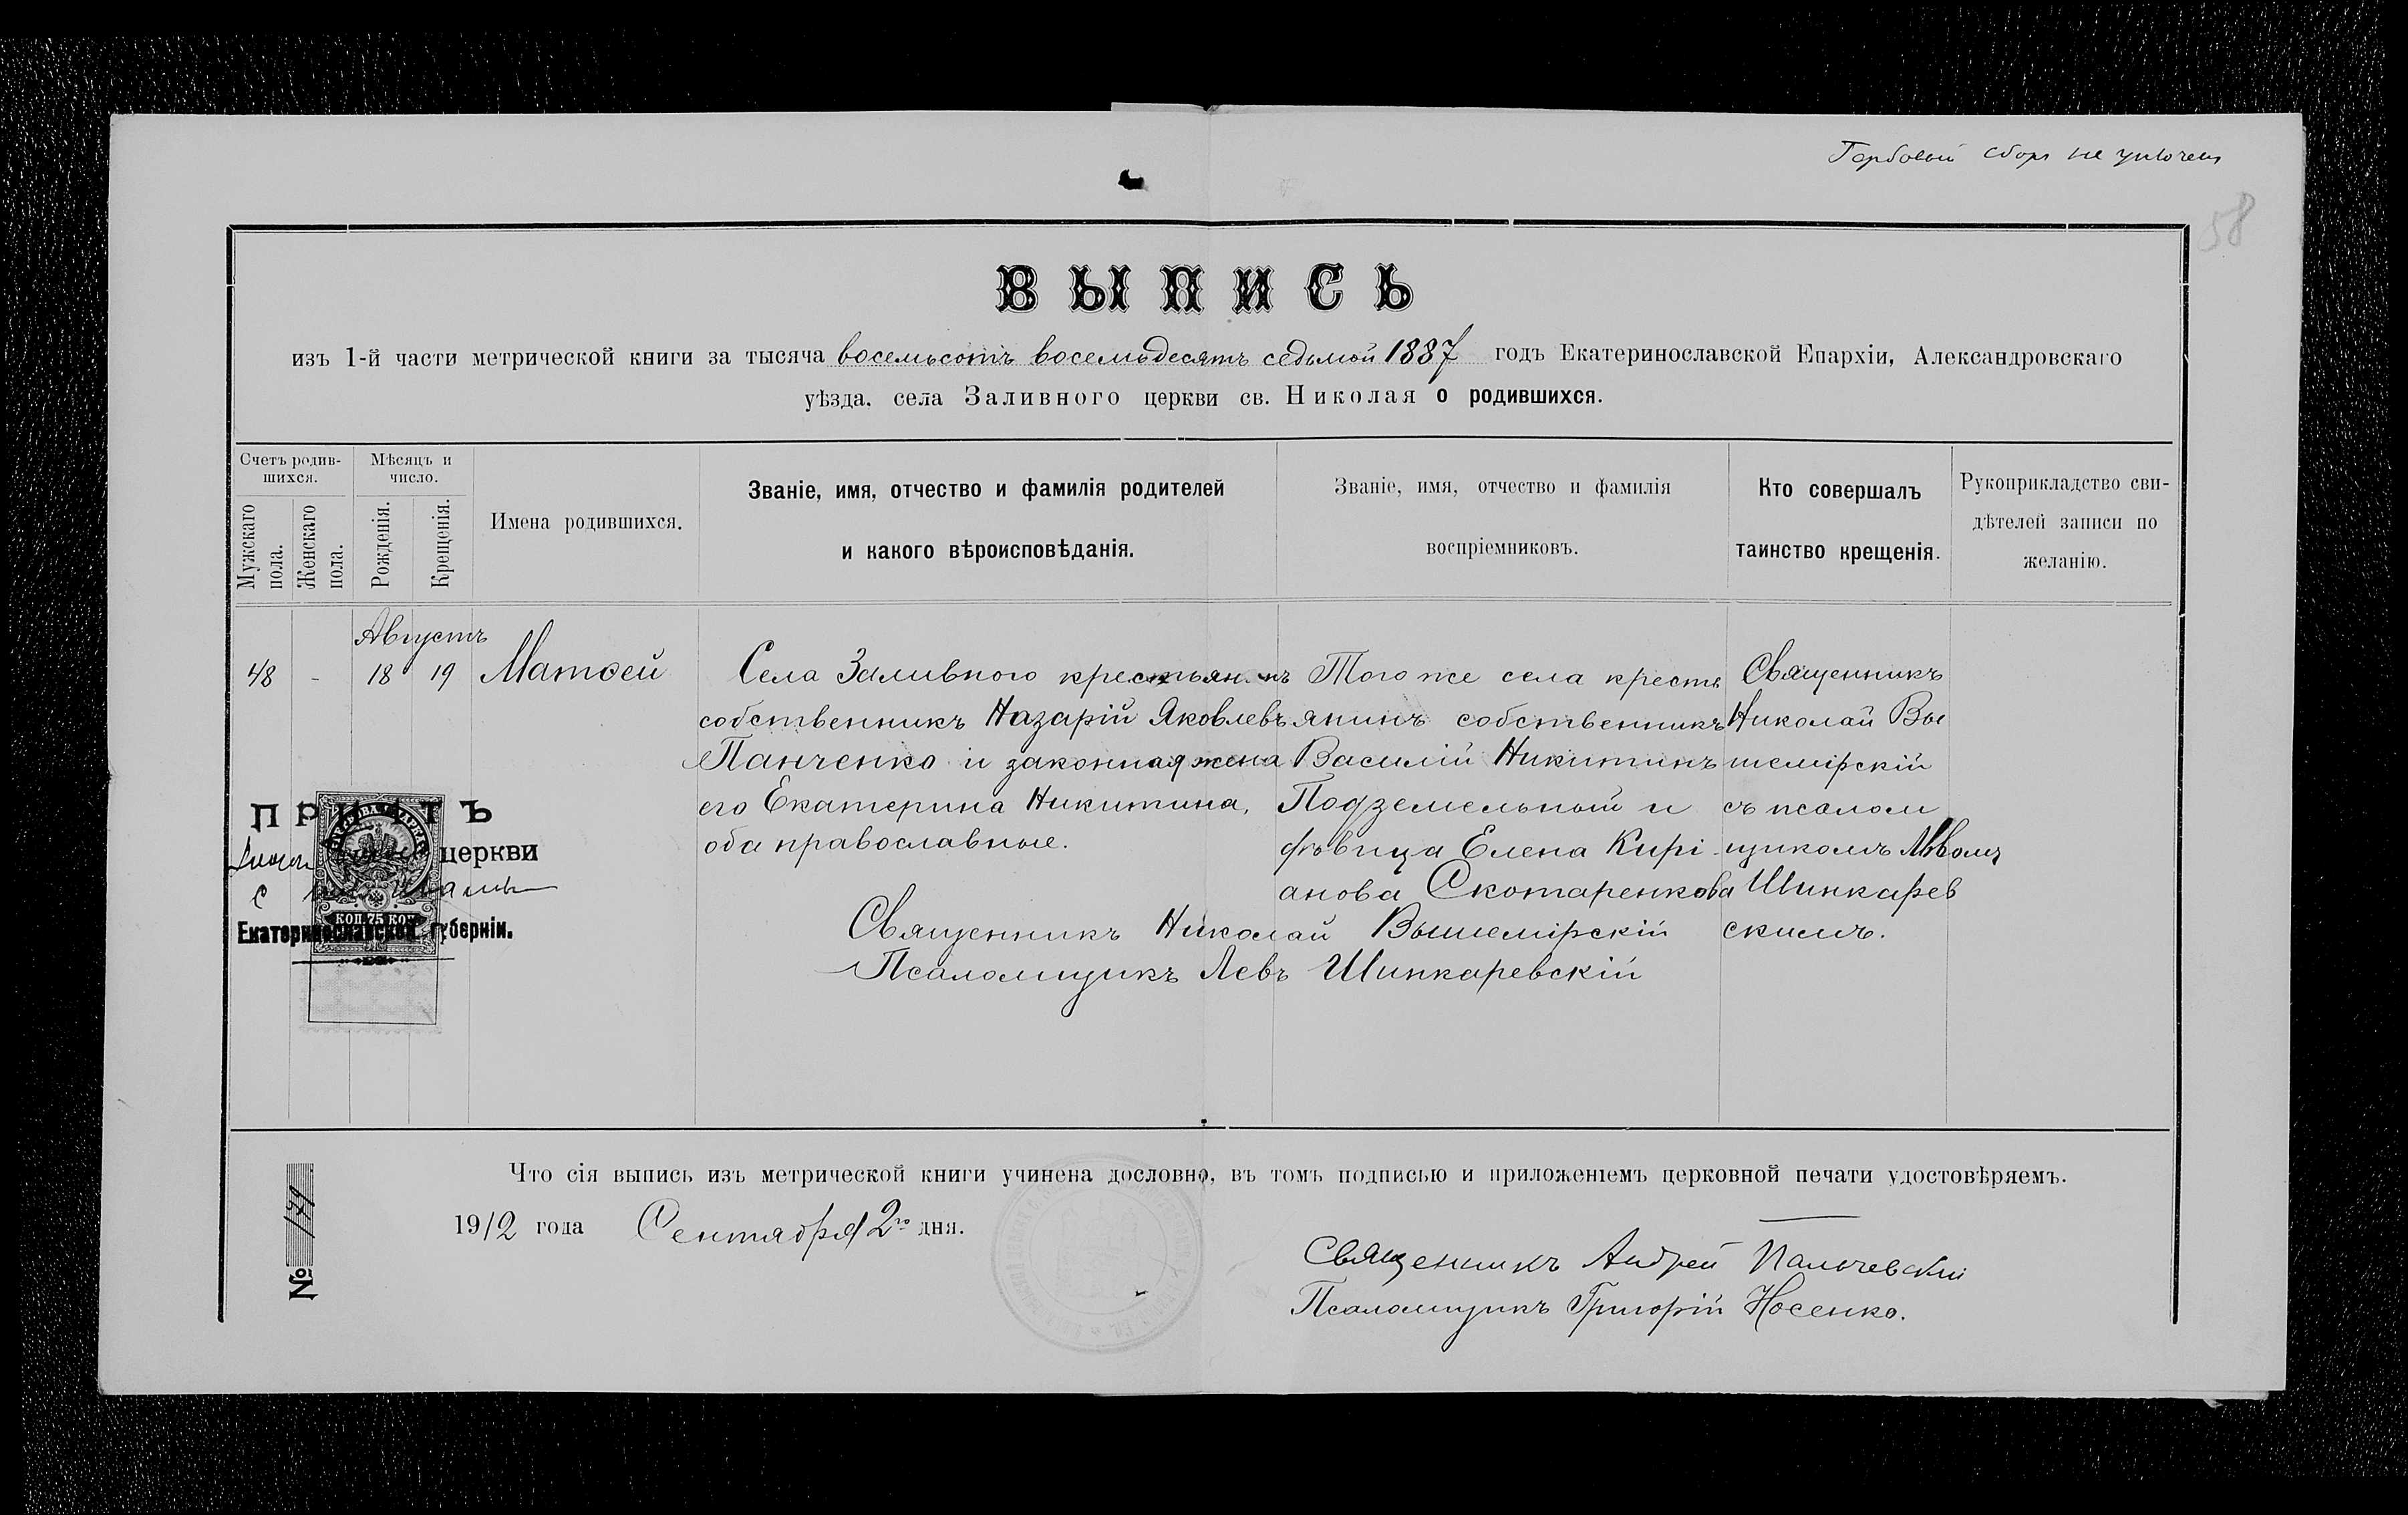 Гербовый сборъ не уплоченъ
58
ВЫПИСЬ
изъ 1-й части метрической книги за тысяча восемьсотъ восемьдесятъ седьмой 1887 годъ Екатеринославской Епархіи, Александровскаго
уѣзда, села Заливного церкви св. Николая о родившихся.
Счетъ родив-
шихся.
Мужскаго
пола.
Женскаго
пола.
Мѣсяцъ и
число.
Рожденія.
Крещенія.
Имена родившихся.
Званіе, имя, отчество и фамилія родителей
и какого вѣроисповѣданія.
Званіе, имя, отчество и фамилія
воспріемниковъ.
Кто совершалъ
таинство крещенія.
Рукоприкладство сви-
дѣтелей записи по
желанію.
Августъ
48 - 18 19 Матѳей
Села Заливного крестьянинъ
собственникъ Назарій Яковлевъ
Панченко и законная жена
его Екатерина Никитина,
оба православные.
Того же села кресть
янинъ собственникъ
Василій Никитинъ
Подземельный и
дѣвица Елена Кирі-
анова Скотаренкова
Священникъ
Николай Вы
шемірскій
съ псалом
щикомъ Львомъ
Шинкарев
скимъ.
Священникъ Николай Вышемірскій
Псаломщикъ Левъ Шинкаревскій
ПРИЧТЪ
церкви
с
Екатеринославской губерніи.
КОП. 75 КОП.
Что сія выпись изъ метрической книги учинена дословно, въ томъ подписью и приложеніемъ церковной печати удостовѣряемъ.
№ 179
1912 года Сентября 2го дня.
Священникъ Андрей Пальчевскій
Псаломщикъ Григорій Носенко.